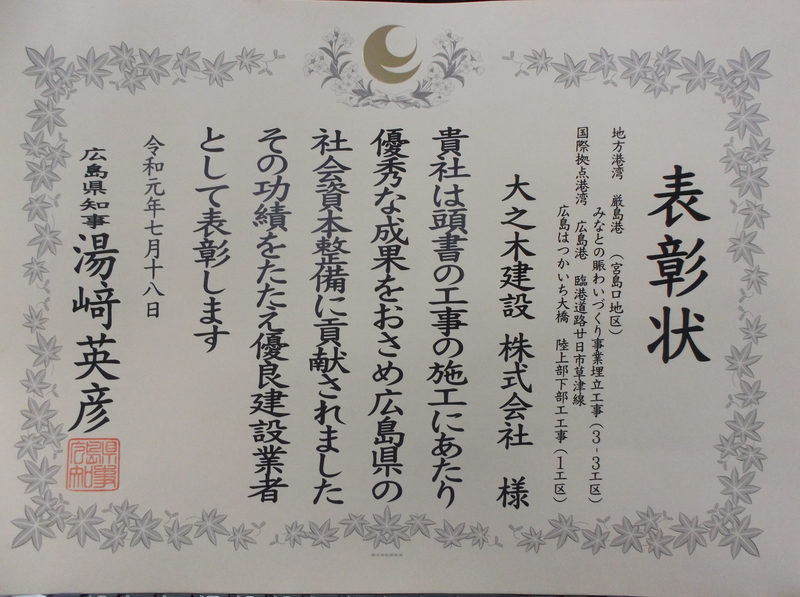 表彰状
地方港湾　厳島港　（宮島口地区）
みなとの賑わいづくり事業埋立工事（３-３工区）
国際拠点港湾　広島港　臨港道路廿日市草津線
広島はつかいち大橋　陸上部下部工工事（１工区）
大之木建設　株式会社　様
貴社は頭書の工事の施工にあたり
優秀な成果をおさめ広島県の
社会資本整備に貢献されました
その功績をたたえ優良建設業者
として表彰します
令和元年七月十八日
広島県知事　湯﨑英彦
広島県知事